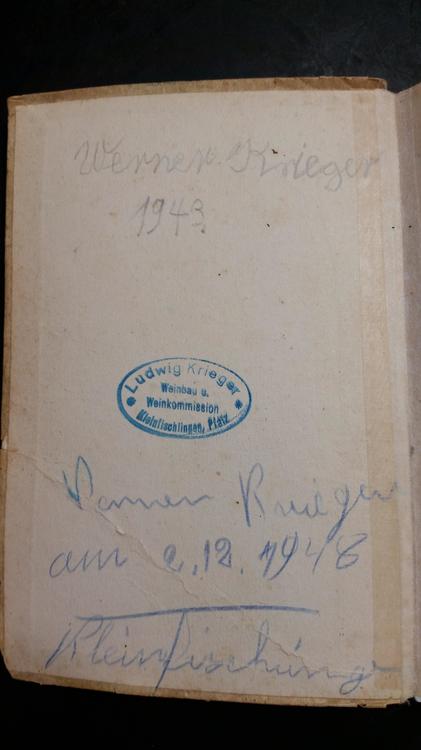 Werner Krieger
1943
Ludwig Krieger
Weinbau u.
Weinkommission
Kleinfischlingen, Pfalz
Krieger
am 2.12.1948